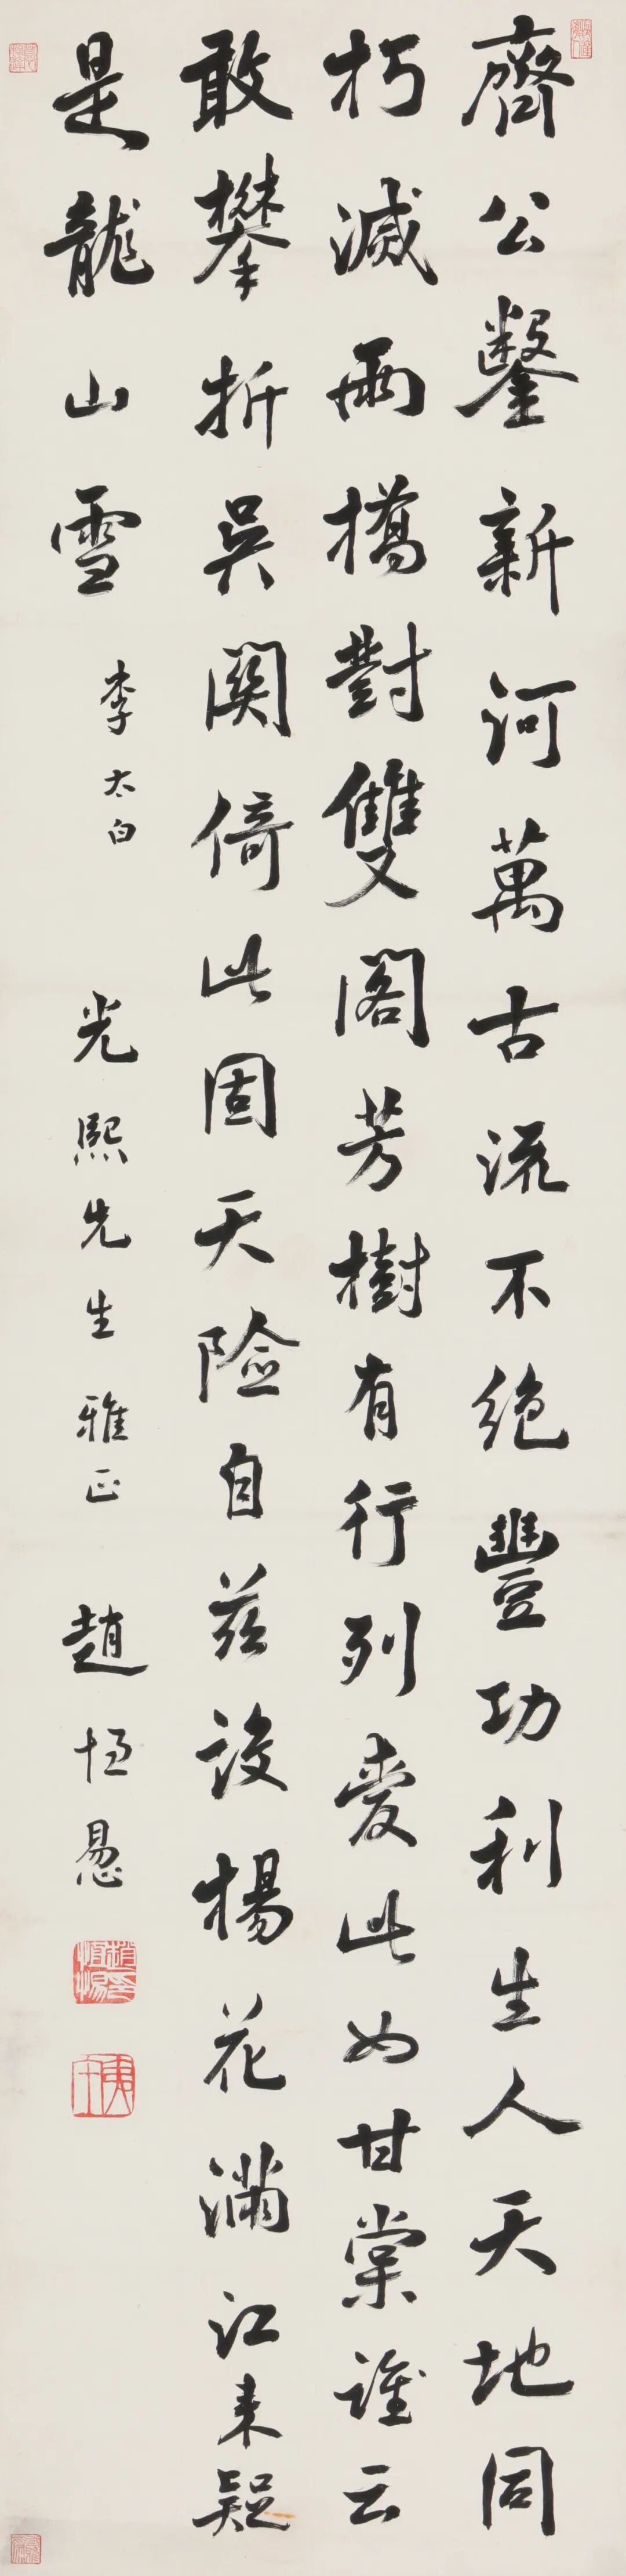 齊公鑿新河萬古流不絕豐功利生人天地同
朽滅兩橋對雙閣芳樹有行列愛此如甘棠誰云
敢攀折吳關倚此固天險自茲設楊花滿江來疑
是龍山雪
李太白
光熙先生雅正
趙恒惖